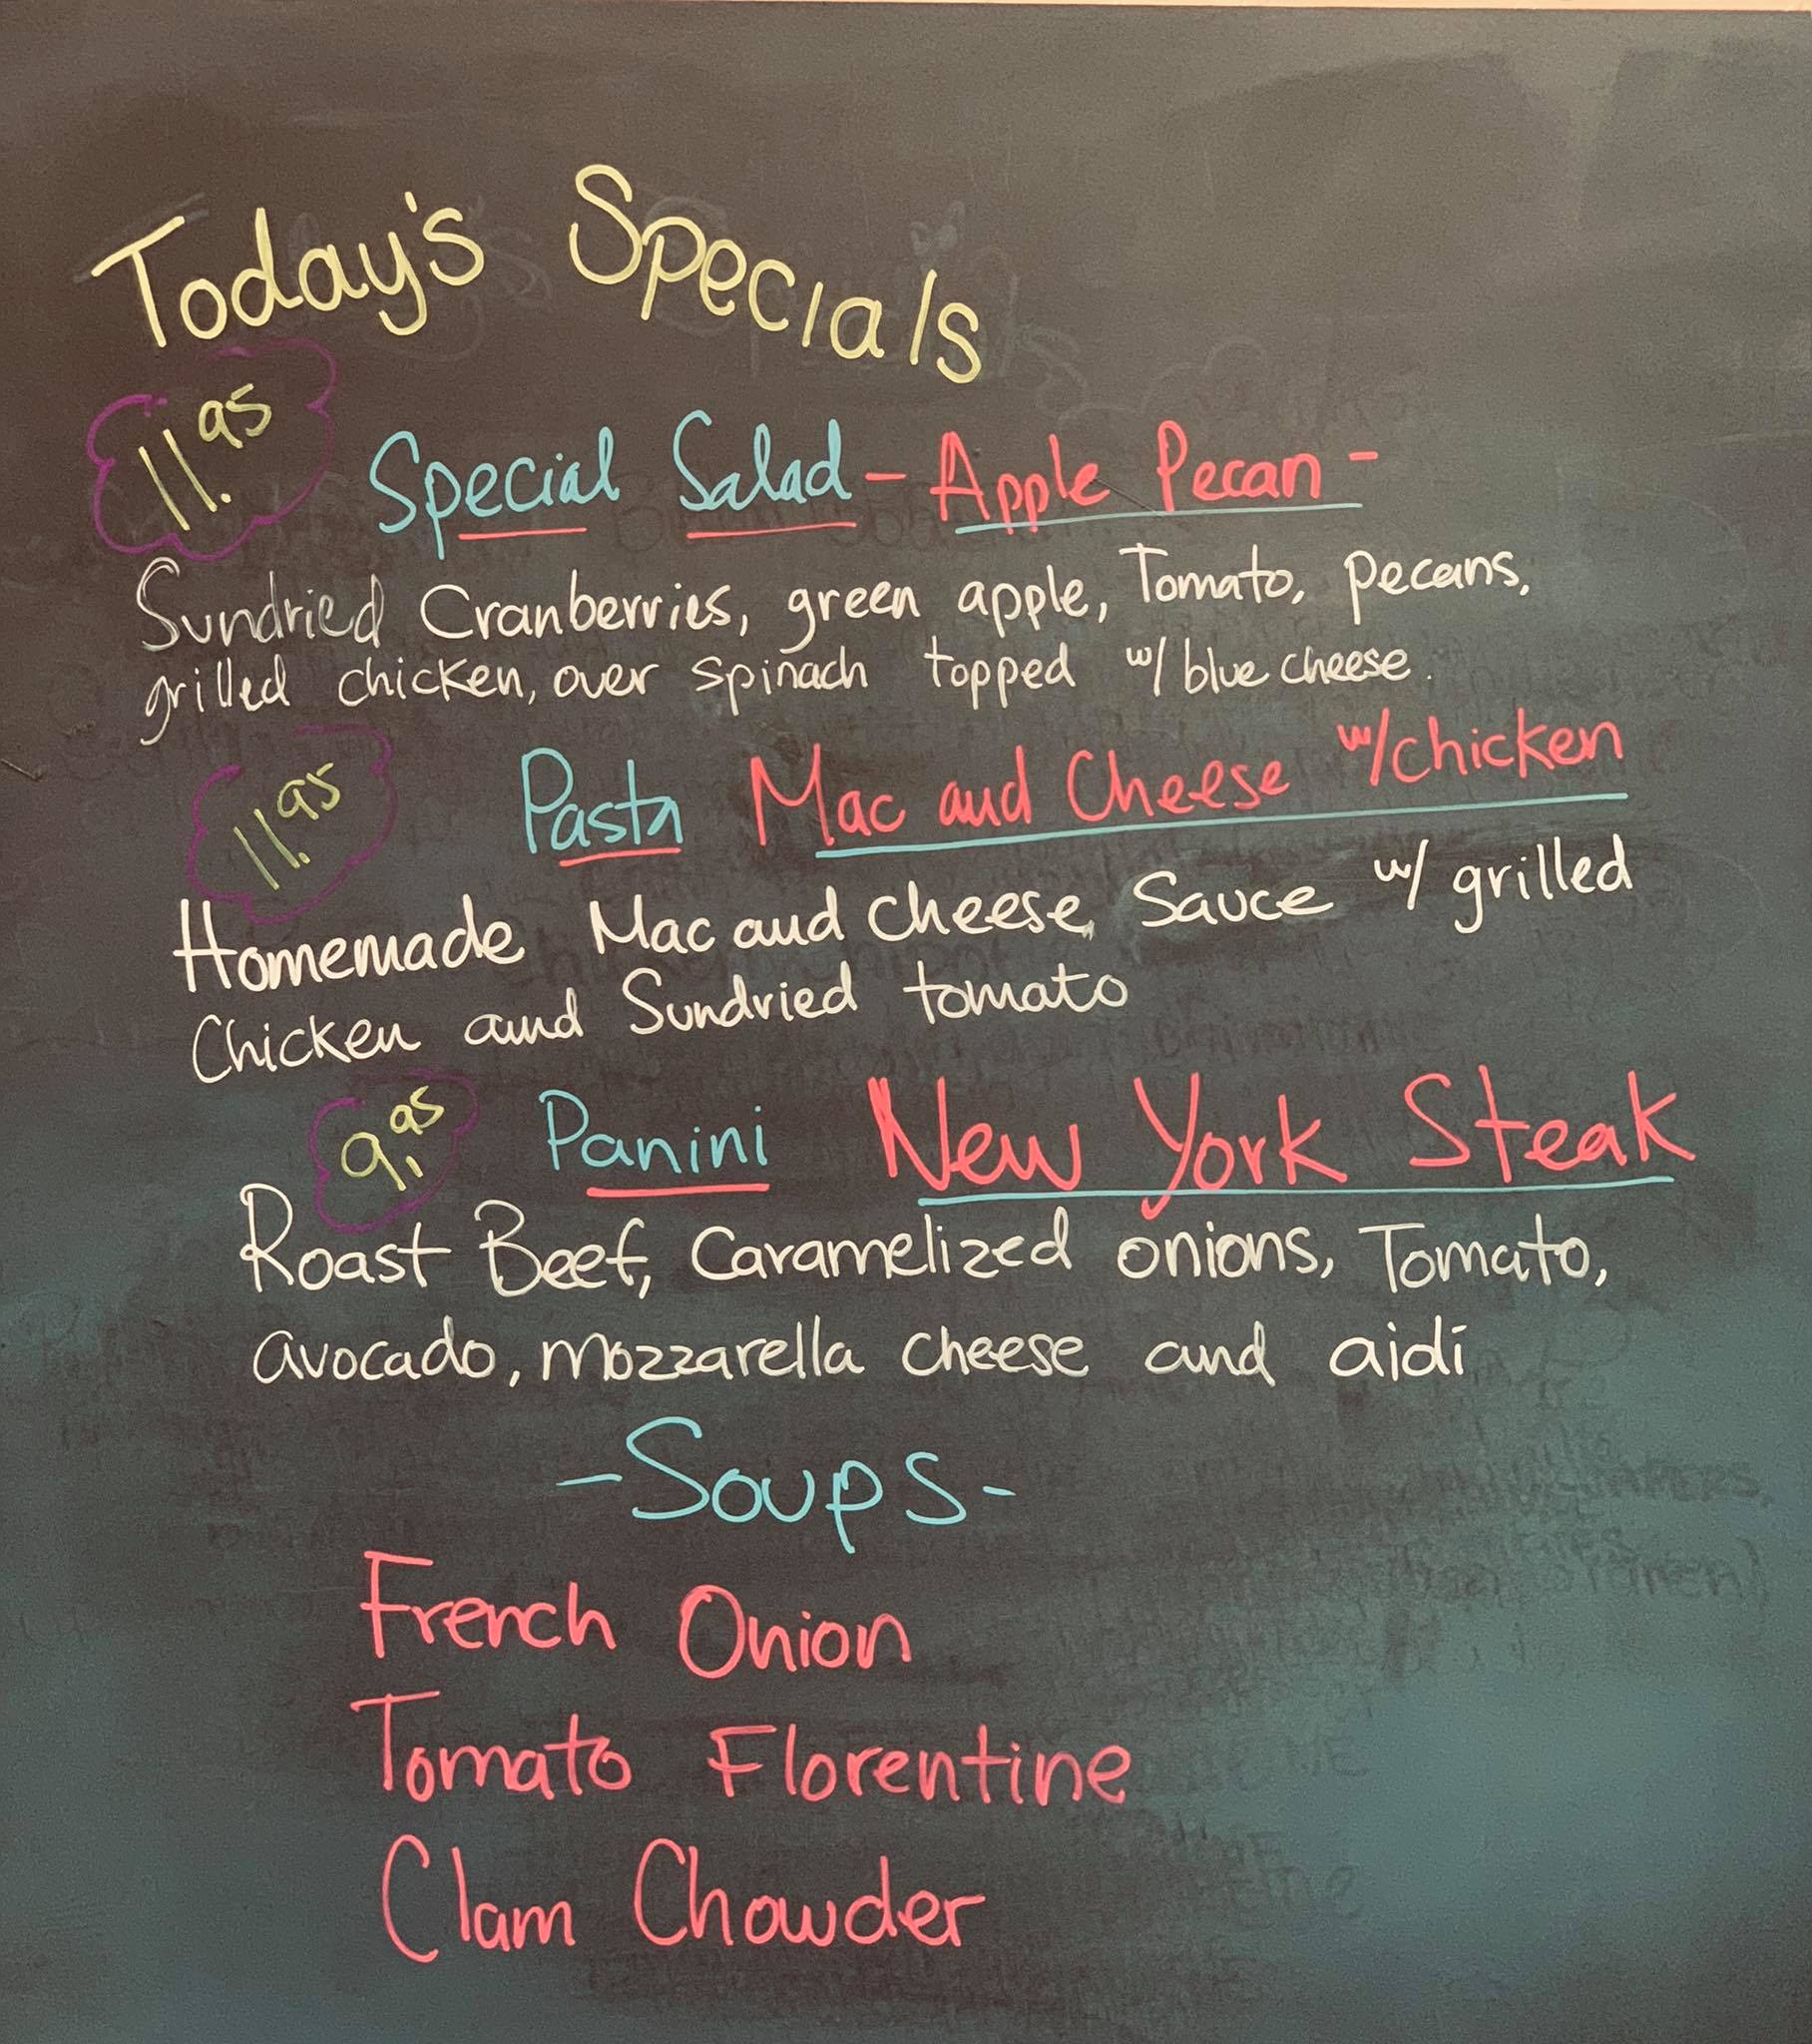 Today's Specials
11.95
Special Salad - Apple Pecan -
Sundried Cranberries, green apple, Tomato, pecans,
grilled chicken, over spinach topped w/ blue cheese.
11.95
Pasta Mac and Cheese w/chicken
Homemade Mac and Cheese, Sauce w/ grilled
Chicken and Sundried tomato
9.95
Panini New York Steak
Roast Beef, Caramelized onions, Tomato,
avocado, mozzarella cheese and aidi
- Soups -
French Onion
Tomato Florentine
Clam Chowder